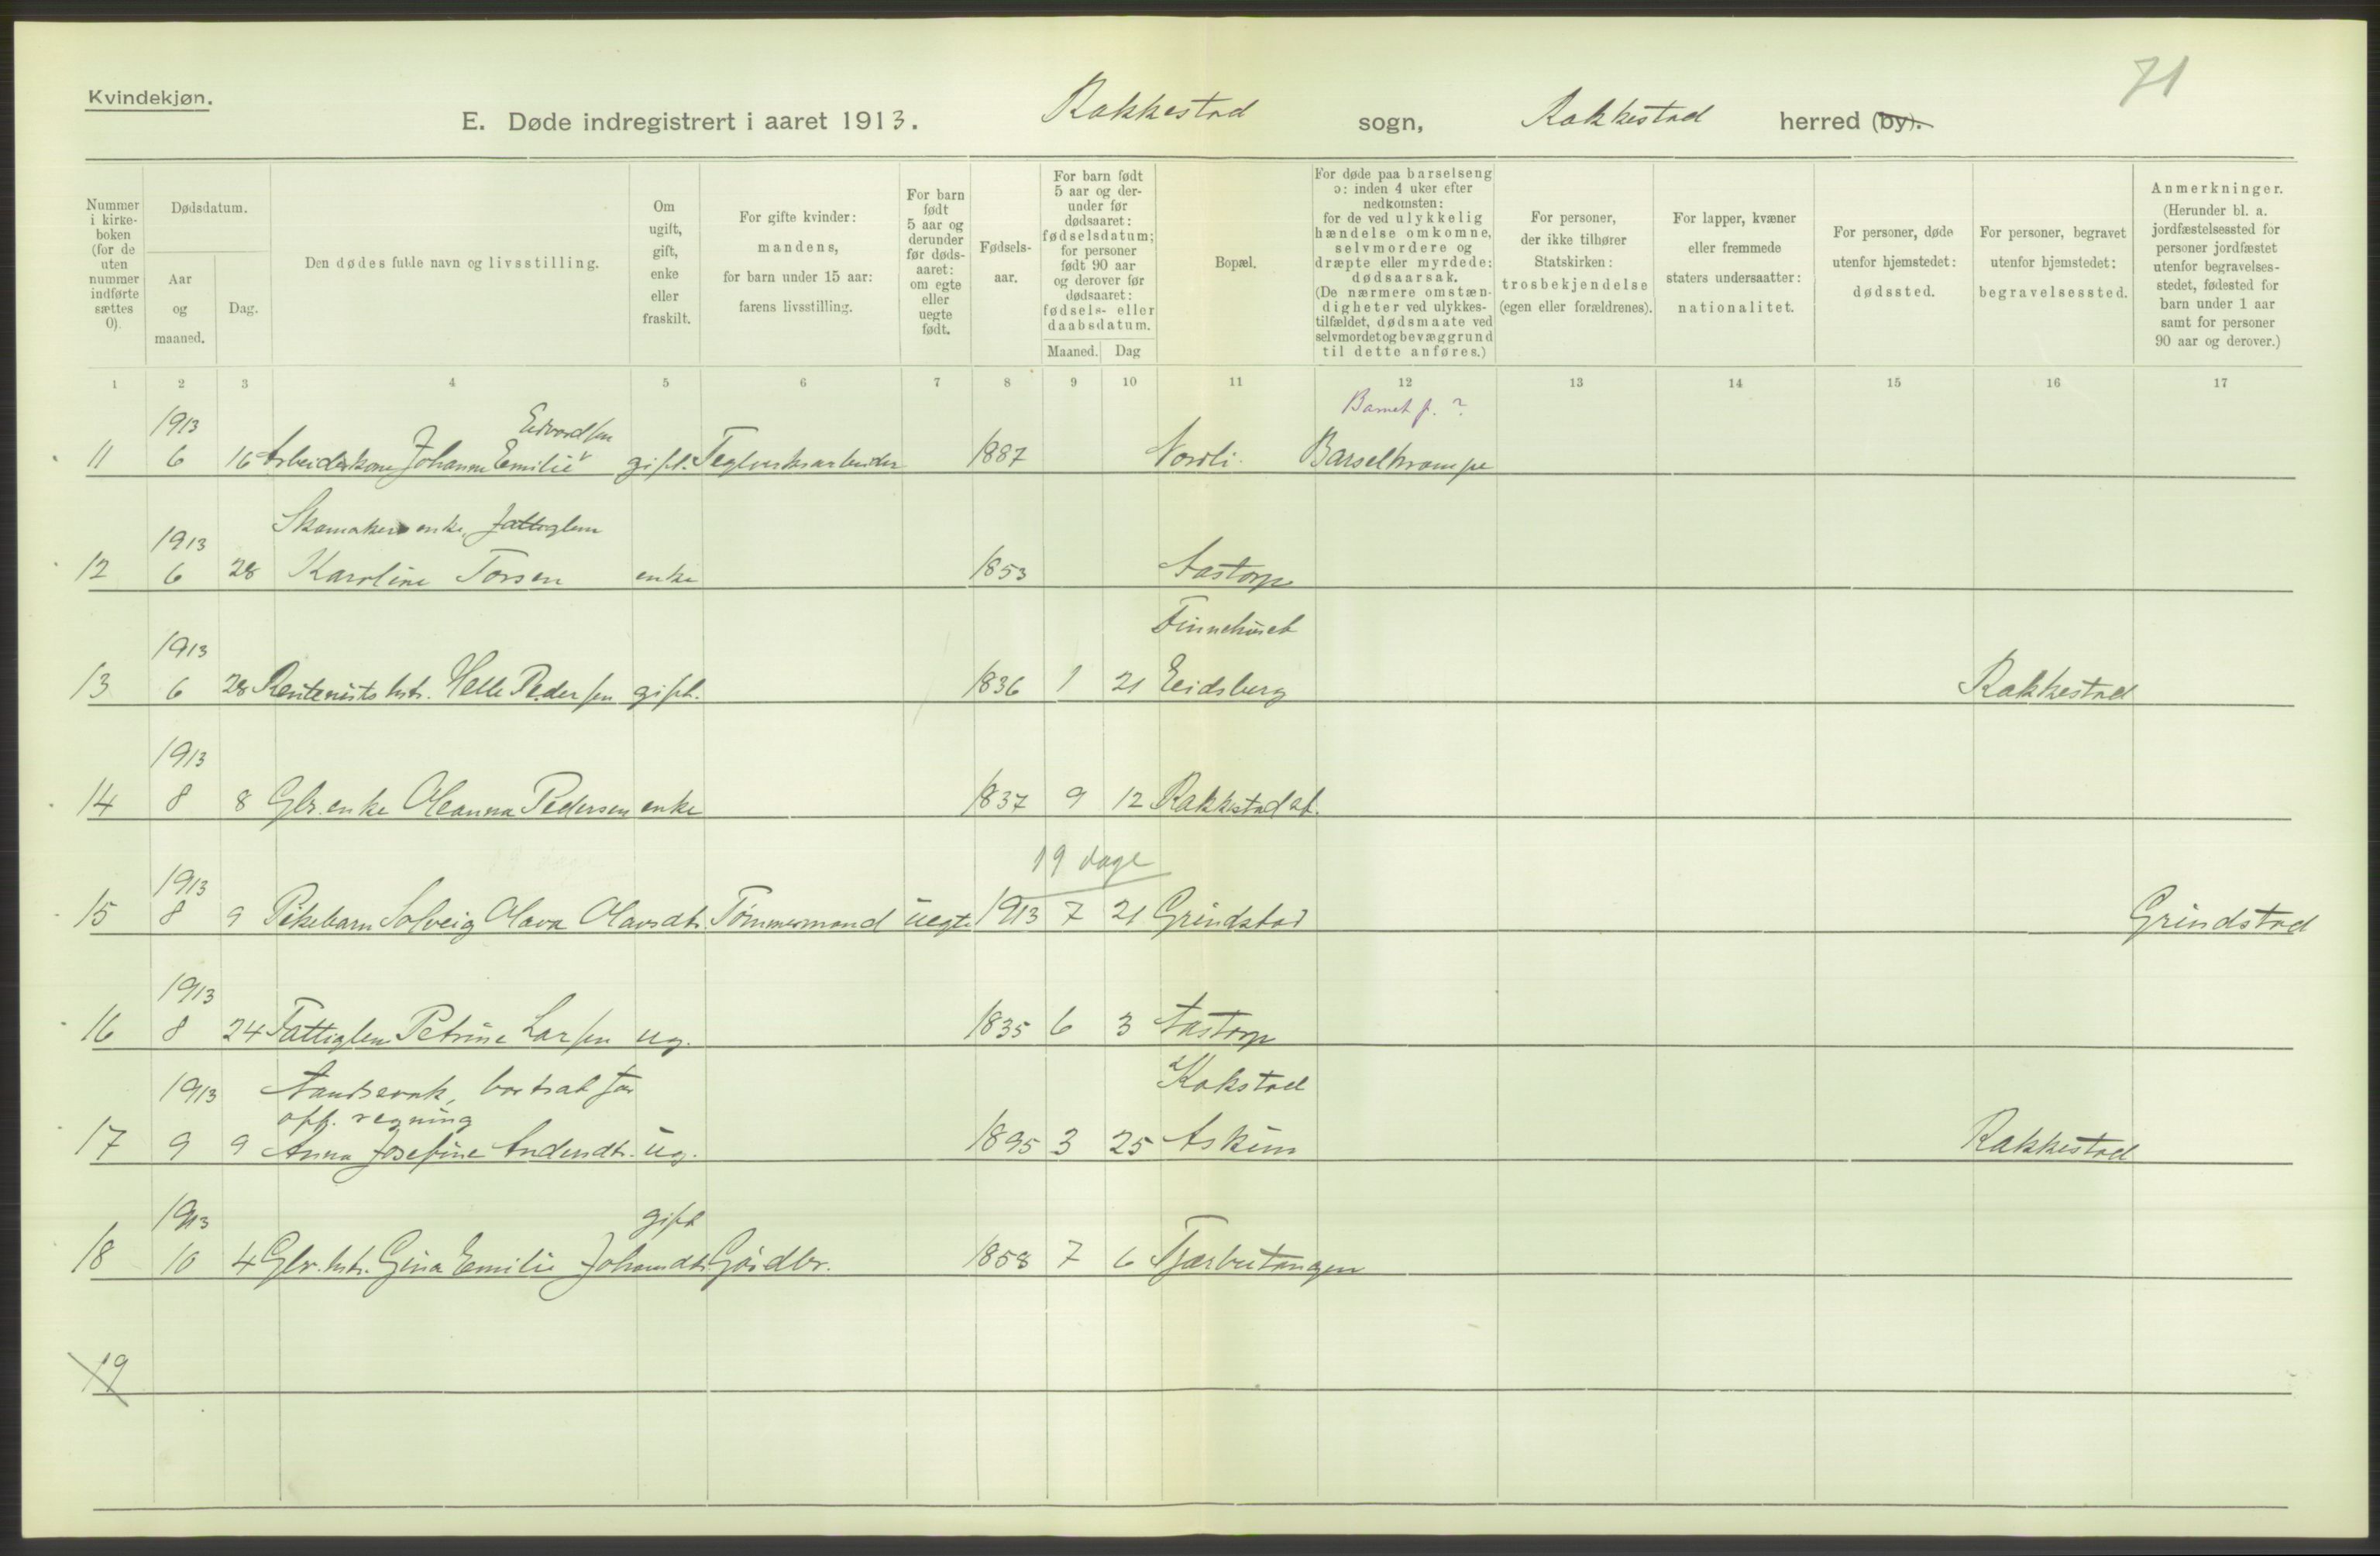 71
Kvindekjøn.
E. Døde indregistrert i aaret 1913. Rakkestad sogn, Rakkestad herred (by).
Nummer i kirkeboken (for de uten nummer indførte sættes 0).
Dødsdatum.
Aar og maaned.
Dag.
Den dødes fulde navn og livsstilling.
Om ugift, gift, enke eller fraskilt.
For gifte kvinder: mandens, for barn under 15 aar: farens livsstilling.
For barn født 5 aar og derunder før dødsaaret: om egte eller uegte født.
Fødselsaar.
For barn født 5 aar og derunder før dødsaaret: fødselsdatum; for personer født 90 aar og derover før dødsaaret: fødsels- eller daabsdatum.
Maaned. Dag
Bopæl.
For døde paa barselseng ɔ: inden 4 uker efter nedkomsten: for de ved ulykkelig hændelse omkomne, selvmordere og dræpte eller myrdede: dødsaarsak. (De nærmere omstændigheter ved ulykkestilfældet, dødsmaate ved selvmordet og bevæggrund til dette anføres.)
For personer, der ikke tilhører Statskirken: trosbekjendelse (egen eller forældrenes).
For lapper, kvæner eller fremmede staters undersaatter: nationalitet.
For personer, døde utenfor hjemstedet: dødssted.
For personer, begravet utenfor hjemstedet: begravelsessted.
Anmerkninger. (Herunder bl. a. jordfæstelsessted for personer jordfæstet utenfor begravelsesstedet, fødested for barn under 1 aar samt for personer 90 aar og derover.)
1 2 3 4 5 6 7 8 9 10 11 12 13 14 15 16 17
1913 Edvardsen Barnet f. ?
11 6 16 Arbeiderkone Johanne Emilie gift. Teglverksarbeider 1887 Nordli. Barselkrampe
Skomakers enke, fattiglem
1913
12 6 28 Karoline Torsen enke 1853 Aastorp
1913 Finnehuset
13 6 28 Rentenists hstr. Helle Pedersen gift. 1836 1 21 Eidsberg Rakkestad
1913
14 8 8 Gbr. enke Oleanna Pedersen enke 1837 9 12 Rakkestad st.
1913 19 dage
15 8 9 Pikebarn Solveig Olava Olavsdtr. Tømmermand uegte 1913 7 21 Grindstad Grindstad
1913
16 8 24 Fattiglem Petrine Larsen ug. 1835 6 3 Aastorp
1913 Aandssvak, bortsat for Kokstad
off. regning
17 9 9 Anna Josefine Andersdtr. ug. 1895 3 25 Askim Rakkestad
1913 gift
18 10 4 Gbr. hstr. Gina Emilie Johansdtr. Gårdbr. 1858 7 6 Tjærbutangen
19